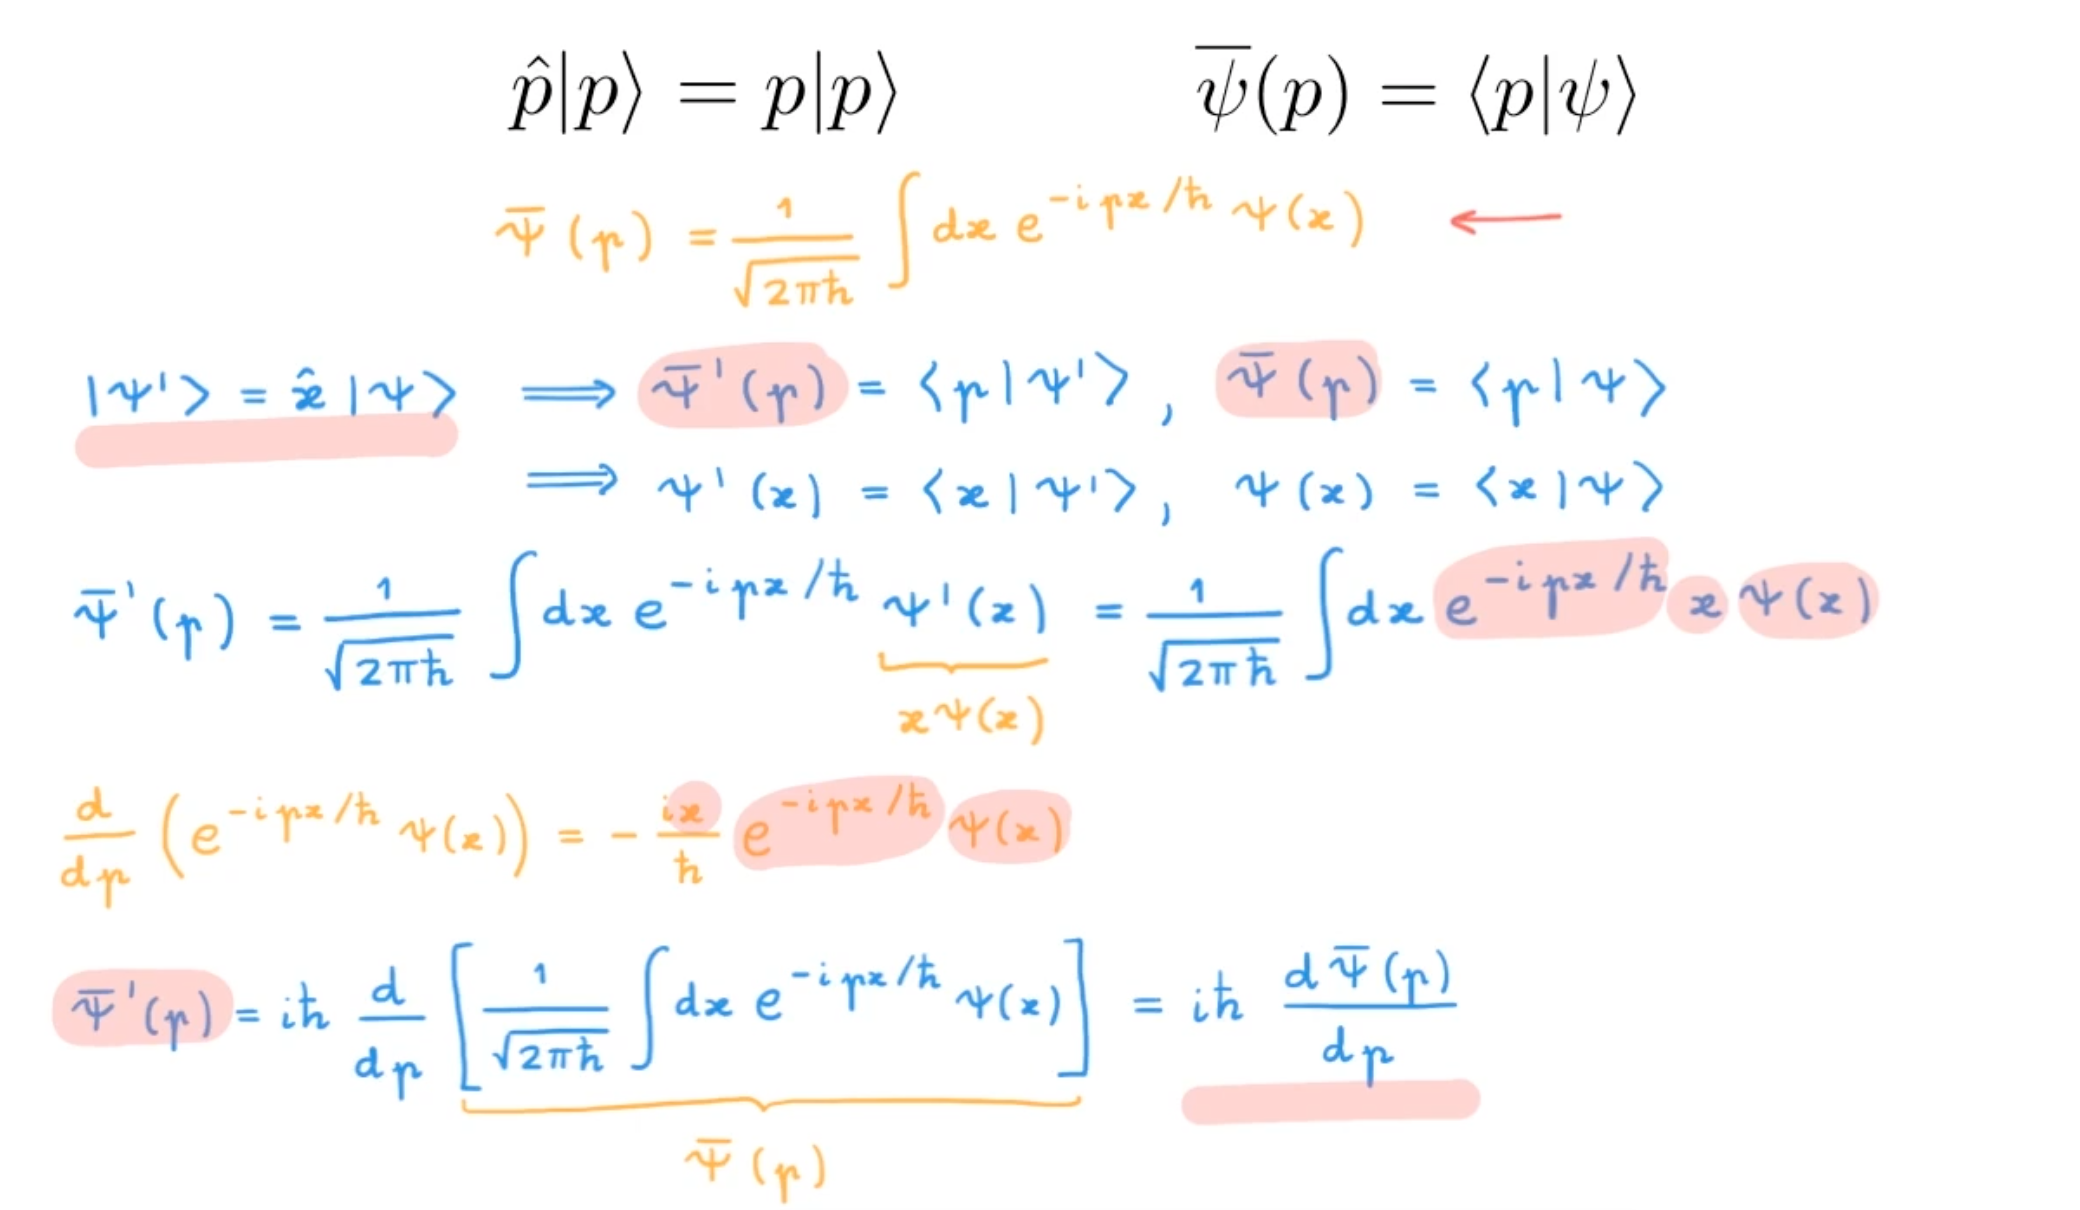 p̂|p⟩ = p|p⟩    ψ̅(p) = ⟨p|ψ⟩
ψ̅(p) = 1/√(2πħ) ∫ dx e^{-ipx/ħ} ψ(x) ←
|ψ'⟩ = x̂|ψ⟩ ⟹ ψ̅'(p) = ⟨p|ψ'⟩, ψ̅(p) = ⟨p|ψ⟩
⟹ ψ'(x) = ⟨x|ψ'⟩, ψ(x) = ⟨x|ψ⟩
ψ̅'(p) = 1/√(2πħ) ∫ dx e^{-ipx/ħ} ψ'(x) = 1/√(2πħ) ∫ dx e^{-ipx/ħ} x ψ(x)
xψ(x)
d/dp (e^{-ipx/ħ} ψ(x)) = - ix/ħ e^{-ipx/ħ} ψ(x)
ψ̅'(p) = iħ d/dp [1/√(2πħ) ∫ dx e^{-ipx/ħ} ψ(x)] = iħ dψ̅(p)/dp
ψ̅(p)